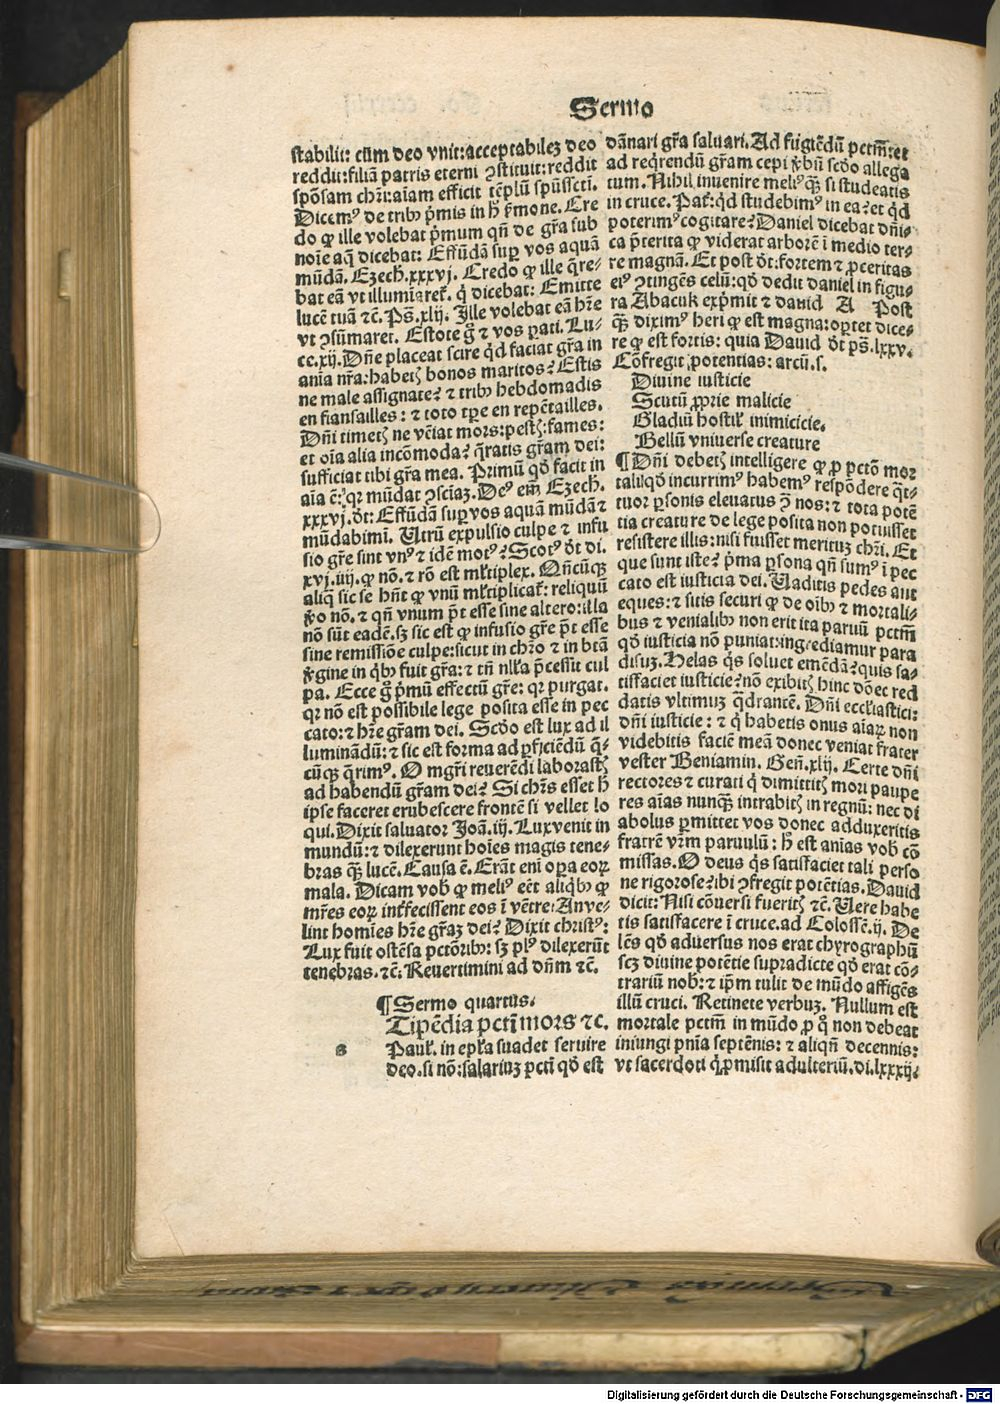 Sermo
stabilit: cũm deo vnit: acceptabileʒ deo
reddit: filiã patris eterni ꝯstituit: reddit
spõsam chr̃i: aĩam efficit tẽplũ spũssctĩ.
Dicemꝰ de tribꝰ p̃mis in h̃ s̃mone. Cre
do ꝙ ille volebat p̃mum qñ de gr̃a sub
noĩe aq̃ dicebat: Effũdã suꝑ vos aquã
mũdã. Ezech̃. xxxvj. Credo ꝙ ille q̃re-
bat eã vt illumĩaret̃. q̃ dicebat: Emitte
lucẽ tuã ⁊c̃. Ps̃. xlij. Ille volebat eã hr̃e
vt ꝯsũmaret. Estote g̃ ⁊ vos ꝑati. Lu-
ce. xij. Dñe placeat scire qͥd faciat gr̃a in
anĩa nr̃a: habetꝭ bonos maritos? Estis
ne male assignate? ⁊ tribꝰ hebdomadis
en fiansailles: ⁊ toto tꝑe en repẽtailles.
Dñi timetꝭ ne vẽiat mors: pestꝭ: fames:
et oĩa alia incõmoda? q̃ratis gr̃am dei:
sufficiat tibi gr̃a mea. Primũ qđ facit in
aĩa ẽ: qꝛ mũdat ꝯsciãʒ. Deꝰ em̃ Ezech̃.
xxxvj. đt: Effũdã suꝑ vos aquã mũdã ⁊
mũdabimĩ. Utrũ expulsio culpe ⁊ infu
sio gr̃e sint vnꝰ ⁊ idẽ motꝰ? Scotꝰ đt di.
xvj. iiij. ꝙ nõ. ⁊ rõ est ml̃tiplex. Qñcũqʒ
aliq̃ sic se hñt ꝙ vnũ ml̃tiplicat̃: reliquũ
ꝟo nõ. ⁊ qñ vnum p̃t esse sine altero: illa
nõ sũt eadẽ. sʒ sic est ꝙ infusio gr̃e p̃t esse
sine remissiõe culpe: sicut in chr̃o ⁊ in btã
ꝟgine in qͥbꝰ fuit gr̃a: ⁊ tñ nll̃a p̃cessit cul
pa. Ecce g̃ p̃mũ effectũ gr̃e: qꝛ purgat.
qꝛ nõ est possibile lege posita esse in pec
cato: ⁊ hr̃e gr̃am dei. Scđo est lux ad il
luminãdũ: ⁊ sic est forma ad ꝑficiẽdũ q̃-
cũqʒ q̃rimꝰ. O mgr̃i reuerẽdi laborastꝭ
ad habendũ gr̃am dei? Si chr̃s esset h̃
ipse faceret erubescere frontẽ si vellet lo
qui. Dixit saluator Joã. iij. Lux venit in
mundũ: ⁊ dilexerunt hoĩes magis tene-
bras qʒ̃ lucẽ. Causa ẽ. Erãt enĩ oꝑa eoꝝ
mala. Dicam vob̃ ꝙ meliꝰ eẽt aliqͥbꝰ ꝙ
mr̃es eoꝝ int̃fecissent eos ĩ vẽtre: An ve-
lint homĩes hr̃e gr̃aʒ dei? Dixit christꝰ:
Lux fuit ostẽsa pctõribꝰ: sʒ plꝰ dilexerũt
tenebras. ⁊c̃. Reuertimini ad dñm ⁊c̃.
¶ Sermo quartus.
Tipẽdia pctĩ mors ⁊c.
s Paul̃. in epl̃a suadet seruire
deo. si nõ: salariuʒ pctĩ qđ est
dãnari gr̃a saluari. Ad fugiẽdũ pctm̃: et
ad reqͥrendũ gr̃am cepi ꝟbũ scđo allega
tum. Nihil inuenire meliꝰ qʒ̃ si studeatis
in cruce. Pat̃: qͥd studebimꝰ in ea? et qͥd
poterimꝰ cogitare? Daniel dicebat dñi-
ca p̃terita ꝙ viderat arborẽ ĩ medio ter-
re magnã. Et post đt: fortem ⁊ ꝓceritas
eiꝰ ꝯtingẽs celũ: qđ dedit daniel in figu-
ra Abacuk exp̃mit ⁊ dauid A Post
qʒ̃ diximꝰ heri ꝙ est magna: oꝑtet dice-
re ꝙ est fortis: quia Dauid đt ps̃. lxxv.
Cõfregit potentias: arcũ. s.
Diuine iusticie
Scutũ ꝓprie malicie
Gladiũ hostil̃ inimicicie.
Bellũ vniuerse creature
¶ Dñi debetꝭ intelligere ꝙ ꝓ pctõ mor
tali qđ incurrimꝰ habemꝰ respõdere q̃t-
tuor ꝑsonis eleuatus ꝯ̃ nos: ⁊ tota potẽ
tia creature de lege posita non potuisset
resistere illis: nisi fuisset merituʒ chr̃i. Et
que sunt iste? p̃ma ꝑsona qñ sumꝰ ĩ pec
cato est iusticia dei. Uaditis pedes aut
eques: ⁊ sitis securi ꝙ de oĩbꝰ ⁊ mortali-
bus ⁊ venialibꝰ non erit ita paruũ pctm̃
qđ iusticia nõ puniat: ingrediamur para
disuʒ. Helas qͥs soluet emẽdã? quis sa-
tisfaciet iusticie? nõ exibitꝭ hinc dõec red
datis vltimuʒ q̃drantẽ. Dñi eccl̃iastici:
dñi iusticie: ⁊ qͥ habetis onus aĩaꝝ non
videbitis faciẽ meã donec veniat frater
vester Beniamin. Geñ. xlij. Certe dñi
rectores ⁊ curati qͥ dimittitꝭ mori paupe
res aĩas nunqʒ̃ intrabitꝭ in regnũ: nec di
abolus ꝑmittet vos donec adduxeritis
fratrẽ vr̃m paruulũ: h̃ est anĩas vob̃ cõ
missas. O deus qͥs satisfaciet tali perso
ne rigorose? ibi ꝯfregit potẽtias. Dauid
dicit: Nisi cõuersi fueritꝭ ⁊c̃. Uere habe
tis satisfacere ĩ cruce. ad Colossẽ. ij. De
lẽs qđ aduersus nos erat chyrographũ
scʒ diuine potẽtie supradicte qđ erat cõ-
trariũ nob̃: ⁊ ip̃m tulit de mũdo affigẽs
illũ cruci. Retinete verbuʒ. Nullum est
mortale pctm̃ in mũdo ꝓ q̃ non debeat
iniungi pñĩa septẽnis: ⁊ aliqñ decennis:
vt sacerdoti qͥ ꝑmisit adulteriũ. di. lxxxij.
Digitalisierung gefördert durch die Deutsche Forschungsgemeinschaft - DFG